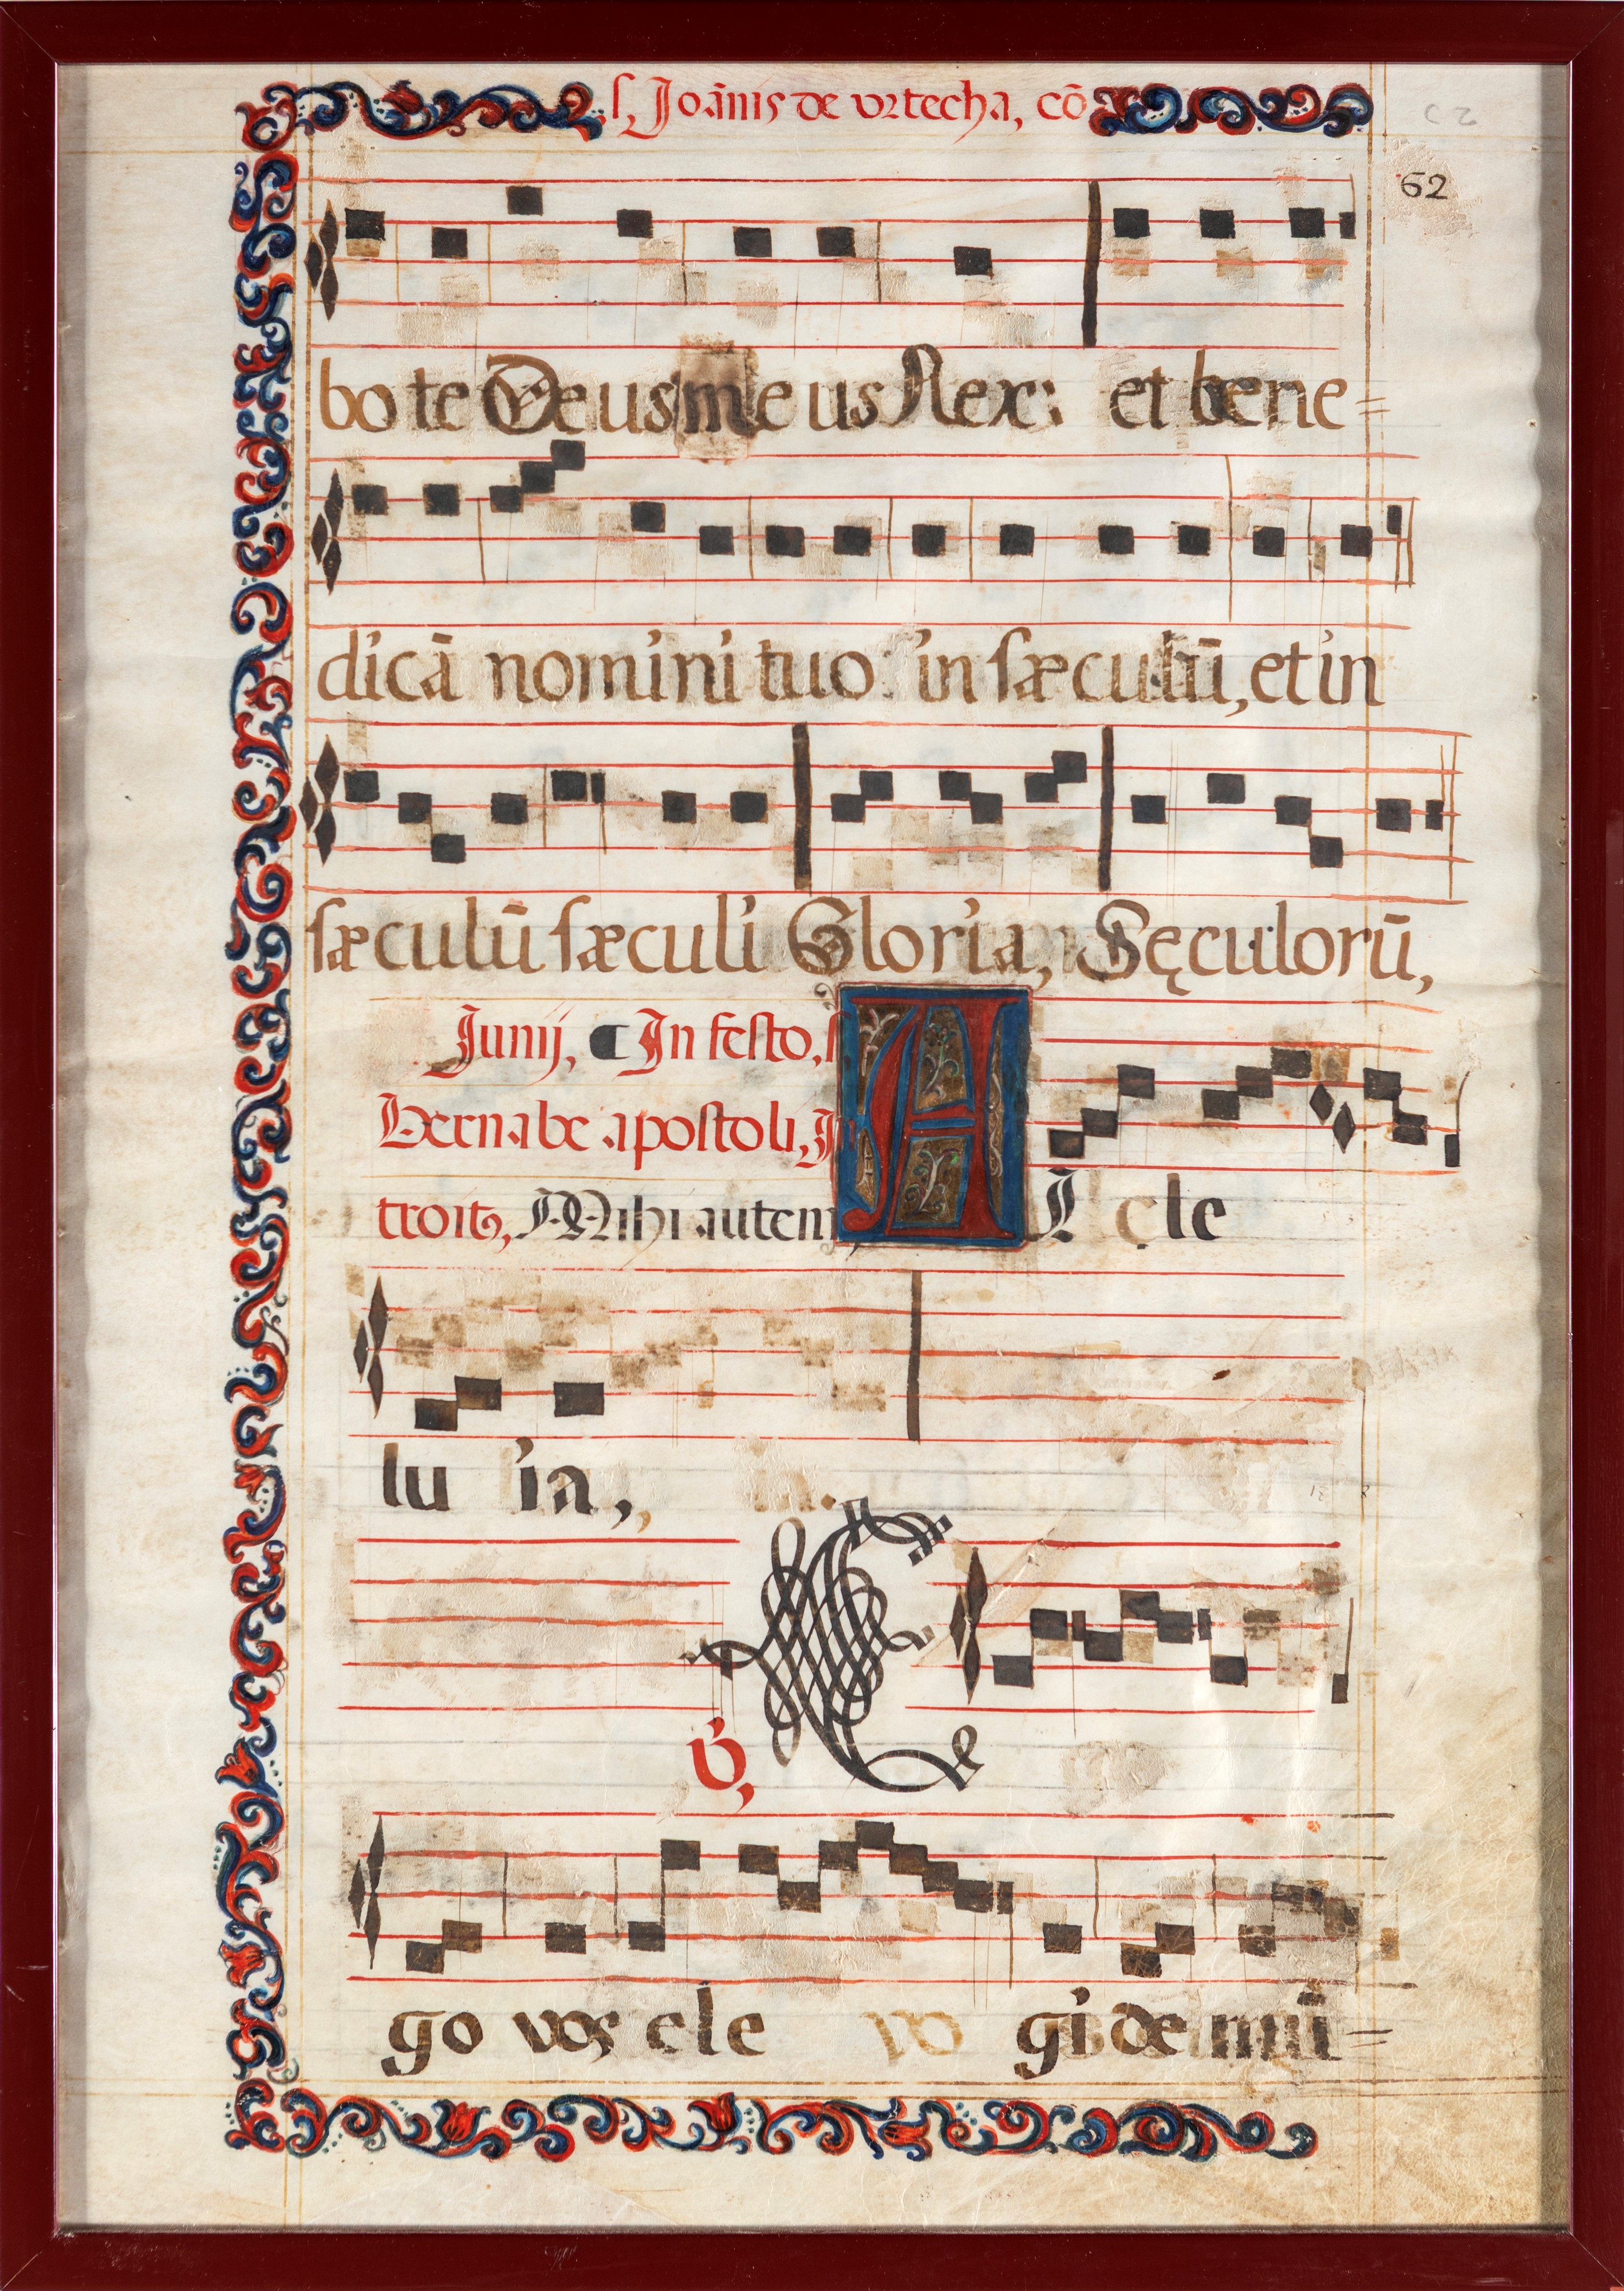 s, Joānis de ortecha, cō
62
bo te Deus meus Rex: et bene=
dicā nomini tuo: in sæculū, et in
sæculū sæculi Gloria, Sęculorū,
Junij, In festo, s
Bernabe apostoli, In
troitꝰ, Mihi autem,
A L e le
lu ia,
℣, E
go vos ele gi de mū=